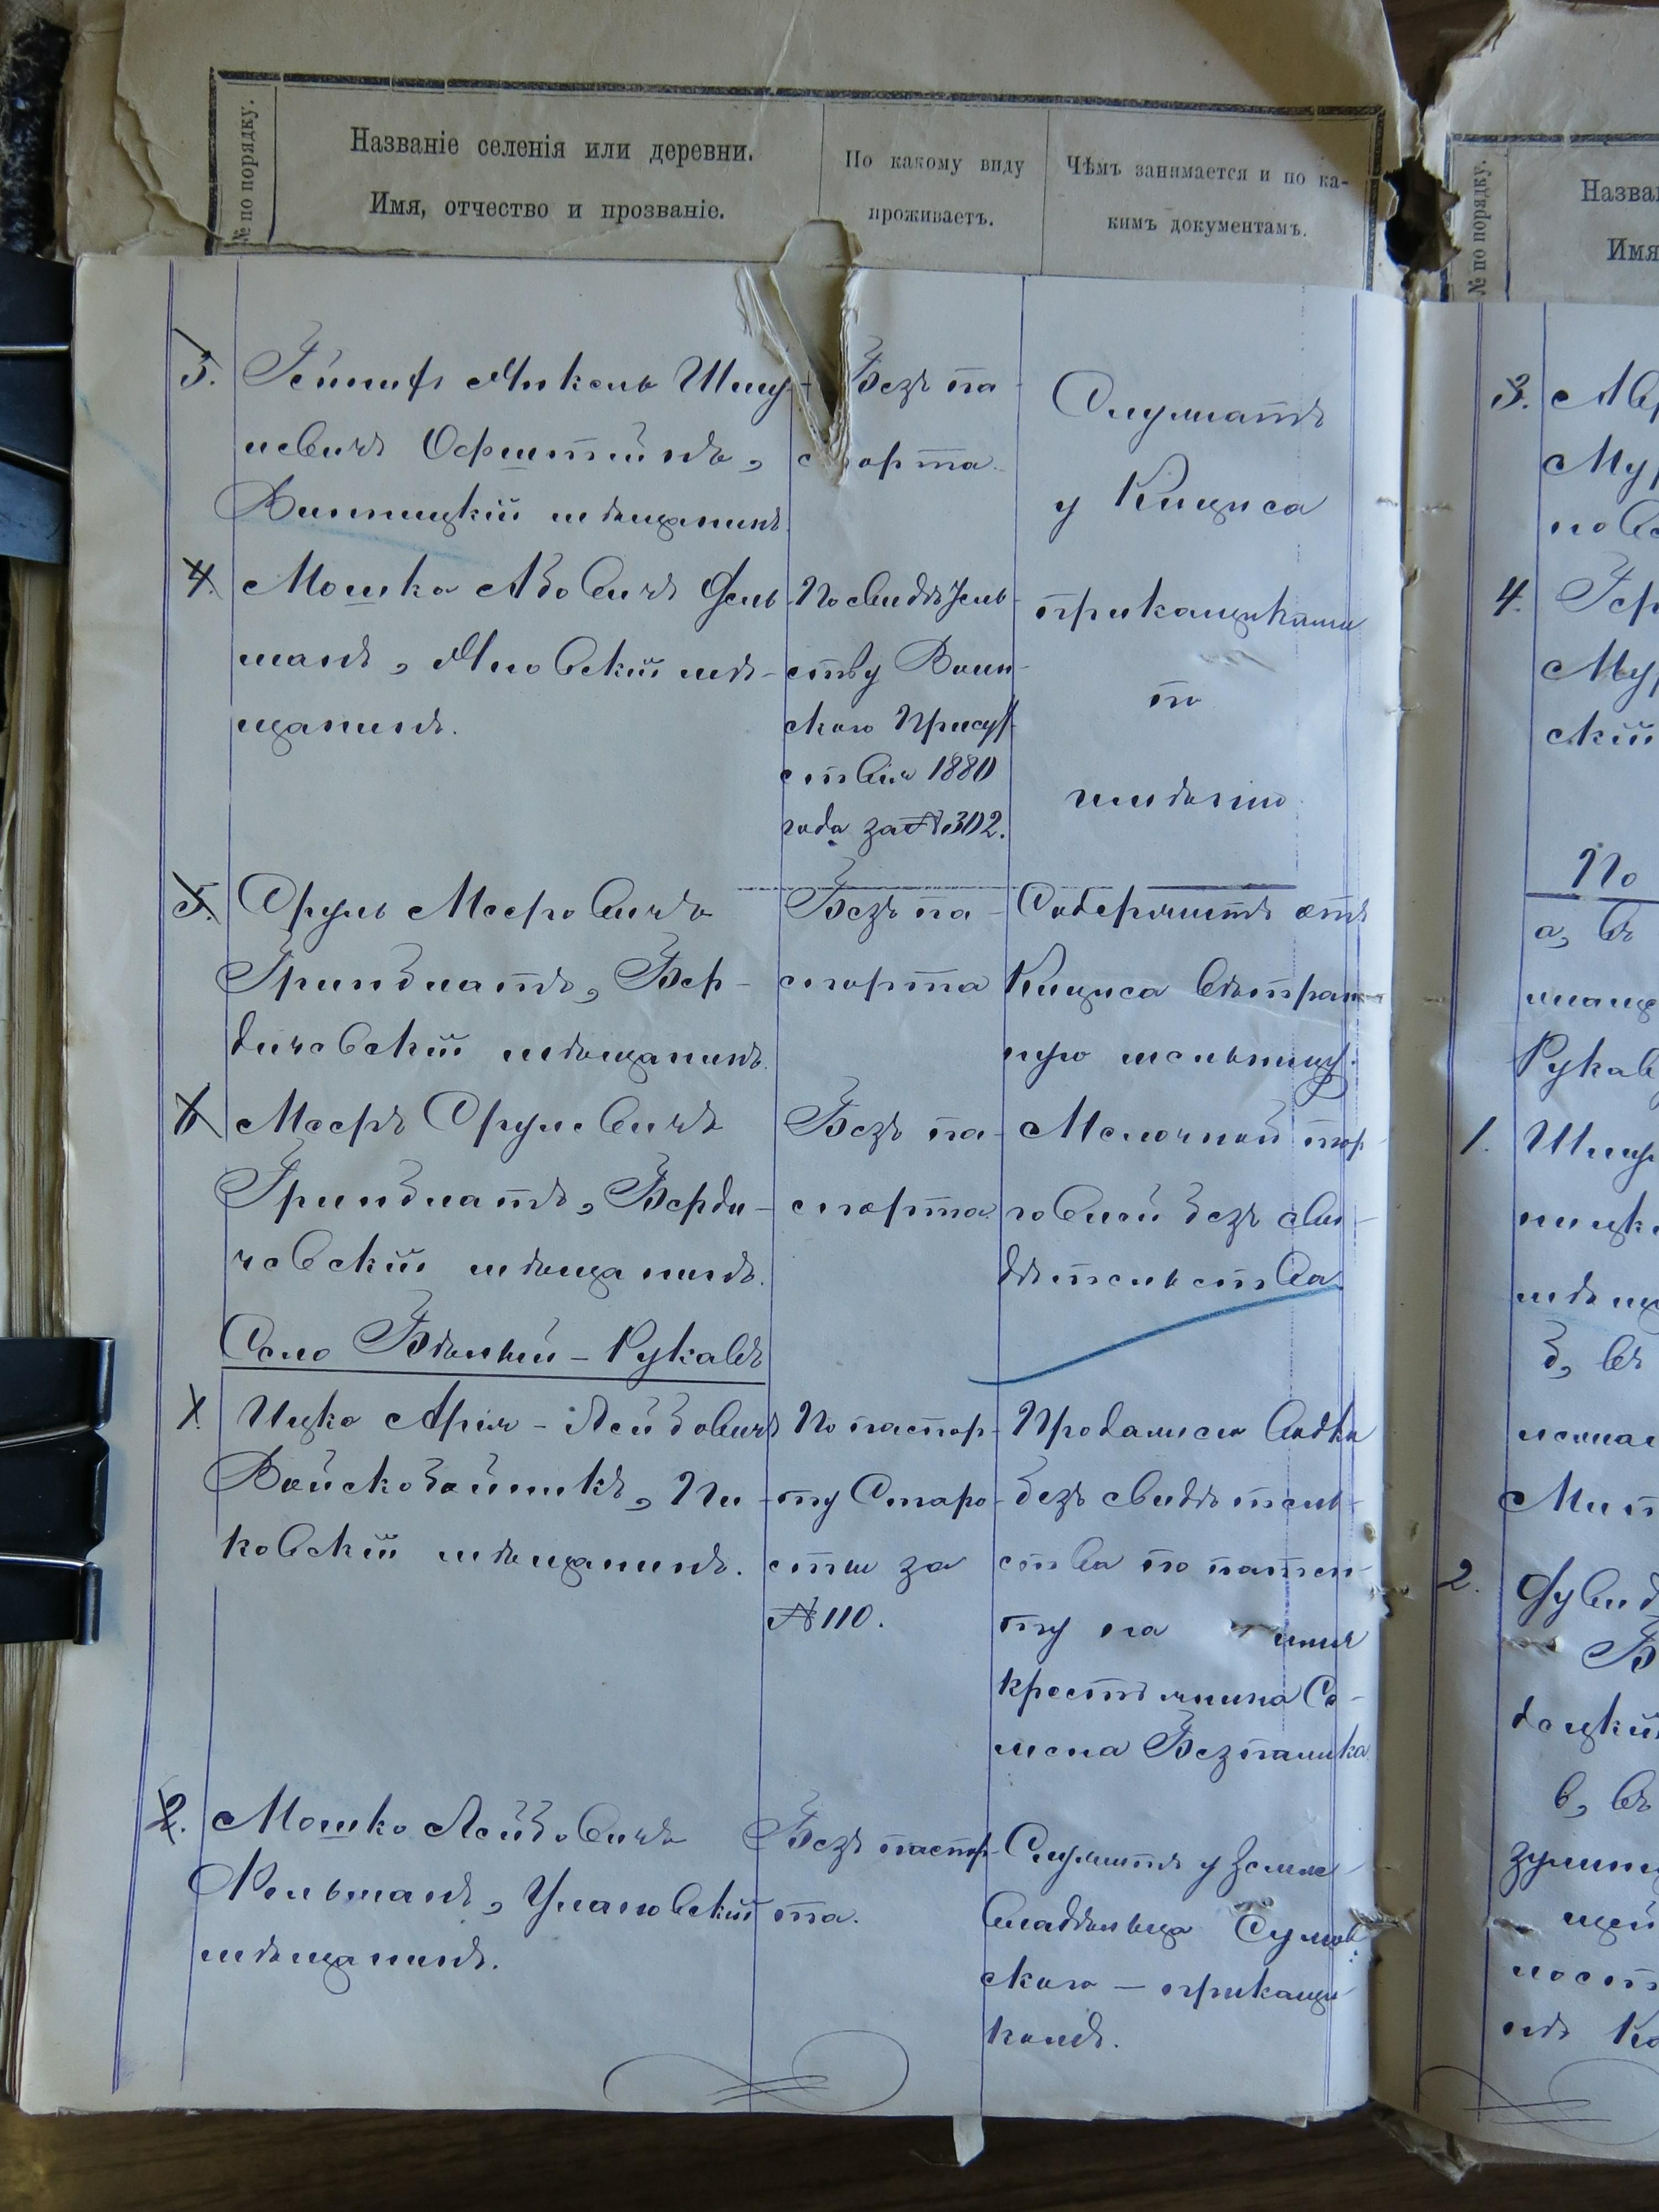 № по порядку.
Названіе селенія или деревни.
Имя, отчество и прозваніе.
По какому виду
проживаетъ.
Чѣмъ занимается и по ка-
кимъ документамъ.
3.
Янкель Шму-
левичъ
Винницкій мѣщанинъ.
Безъ па-
спорта.
Служатъ
у Кициса
4.
Мошко Абовичъ Фель-
манъ, Яновскій мѣ-
щанинъ.
По свидѣтель-
ству Воин-
скаго Присут-
ствія 1880
года за № 302.
прикащиками
по
имѣнію
5.
Сруль Мееровичъ
Гринблатъ, Бер-
дичевскій мѣщанинъ.
Безъ па-
спорта
Содержитъ отъ
Кициса
мельницу.
6.
Мееръ Срулевичъ
Гринблатъ, Берди-
чевскій мѣщанинъ.
Безъ па-
спорта.
Мелочной тор-
говлей безъ сви-
дѣтельства
Село Бѣлый-Рукавъ
1.
Ицко Арія-Лейбовичъ
Войскобойникъ, Пи-
ковскій мѣщанинъ.
По паспор-
ту Старо-
сты за
№ 110.
водки
безъ свидѣтель-
ства по патен-
ту на имя
крестьянина Се-
мена
2.
Мошко Лейбовичъ
Улановскій
мѣщанинъ.
Безъ паспор-
та.
Служитъ у Земле-
владѣльца
скаго — прикащи-
комъ.
№ по порядку.
Назва
Имя
3.
4.
скій
По
а, въ
Рукав
1.
б, въ
2.
в, въ